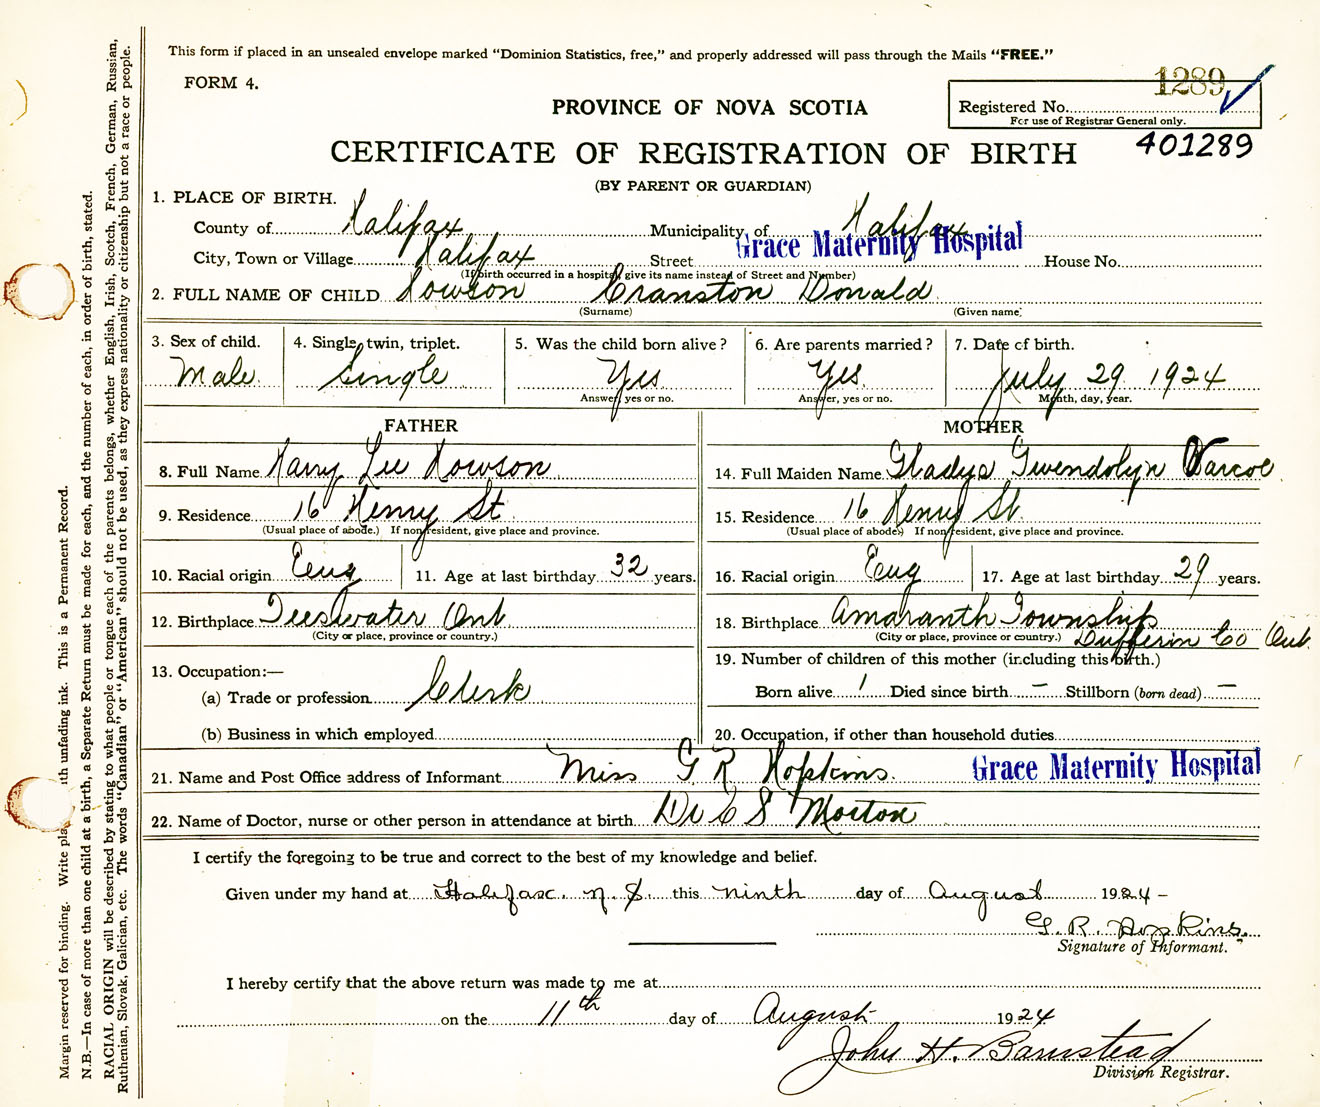 This form if placed in an unsealed envelope marked "Dominion Statistics, free," and properly addressed will pass through the Mails "FREE."
FORM 4.
1289
PROVINCE OF NOVA SCOTIA
Registered No.
For use of Registrar General only.
CERTIFICATE OF REGISTRATION OF BIRTH
401289
(BY PARENT OR GUARDIAN)
1. PLACE OF BIRTH.
County of Halifax Municipality of Halifax
City, Town or Village Halifax Street Grace Maternity Hospital House No.
(If birth occurred in a hospital, give its name instead of Street and Number)
2. FULL NAME OF CHILD Howson Cranston Donald
(Surname) (Given name)
3. Sex of child. 4. Single, twin, triplet. 5. Was the child born alive? 6. Are parents married? 7. Date of birth.
Male Single Yes Yes July 29 1924
Answer, yes or no. Answer, yes or no. Month, day, year.
FATHER MOTHER
8. Full Name Harry Lee Howson 14. Full Maiden Name Gladys Gwendolyn Varcoe
9. Residence 16 Henry St 15. Residence 16 Henry St.
(Usual place of abode.) If non-resident, give place and province. (Usual place of abode.) If non-resident, give place and province.
10. Racial origin Eng 11. Age at last birthday 32 years. 16. Racial origin Eng 17. Age at last birthday 29 years.
12. Birthplace Teeswater Ont 18. Birthplace Amaranth Township
(City or place, province or country.) (City or place, province or country.) Dufferin Co Ont.
13. Occupation:— 19. Number of children of this mother (including this birth.)
(a) Trade or profession Clerk Born alive 1 Died since birth – Stillborn (born dead) –
(b) Business in which employed 20. Occupation, if other than household duties
21. Name and Post Office address of Informant Miss G R Hopkins. Grace Maternity Hospital
22. Name of Doctor, nurse or other person in attendance at birth Dr C S Morton
I certify the foregoing to be true and correct to the best of my knowledge and belief.
Given under my hand at Halifax. N. S. this ninth day of August 1924-
G. R. Hopkins.
Signature of Informant.
I hereby certify that the above return was made to me at
on the 11th day of August 1924
John H. Barnstead
Division Registrar.
Margin reserved for binding. Write plainly with unfading ink. This is a Permanent Record.
N.B.—In case of more than one child at a birth, a Separate Return must be made for each, and the number of each, in order of birth, stated.
RACIAL ORIGIN will be described by stating to what people or tongue each of the parents belongs, whether English, Irish, Scotch, French, German, Russian,
Ruthenian, Slovak, Galician, etc. The words "Canadian" or "American" should not be used, as they express nationality or citizenship but not a race or people.